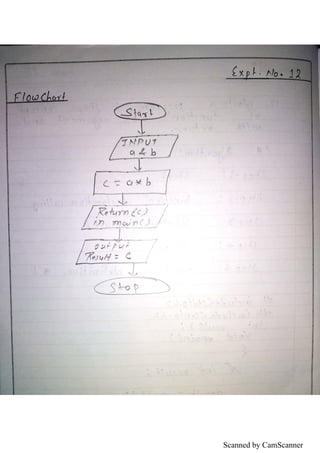 Expt. No. 12
Flowchart
Start
INPUT
a & b
C = a * b
Return(c)
in main().
output
Result = C
Stop
Scanned by CamScanner